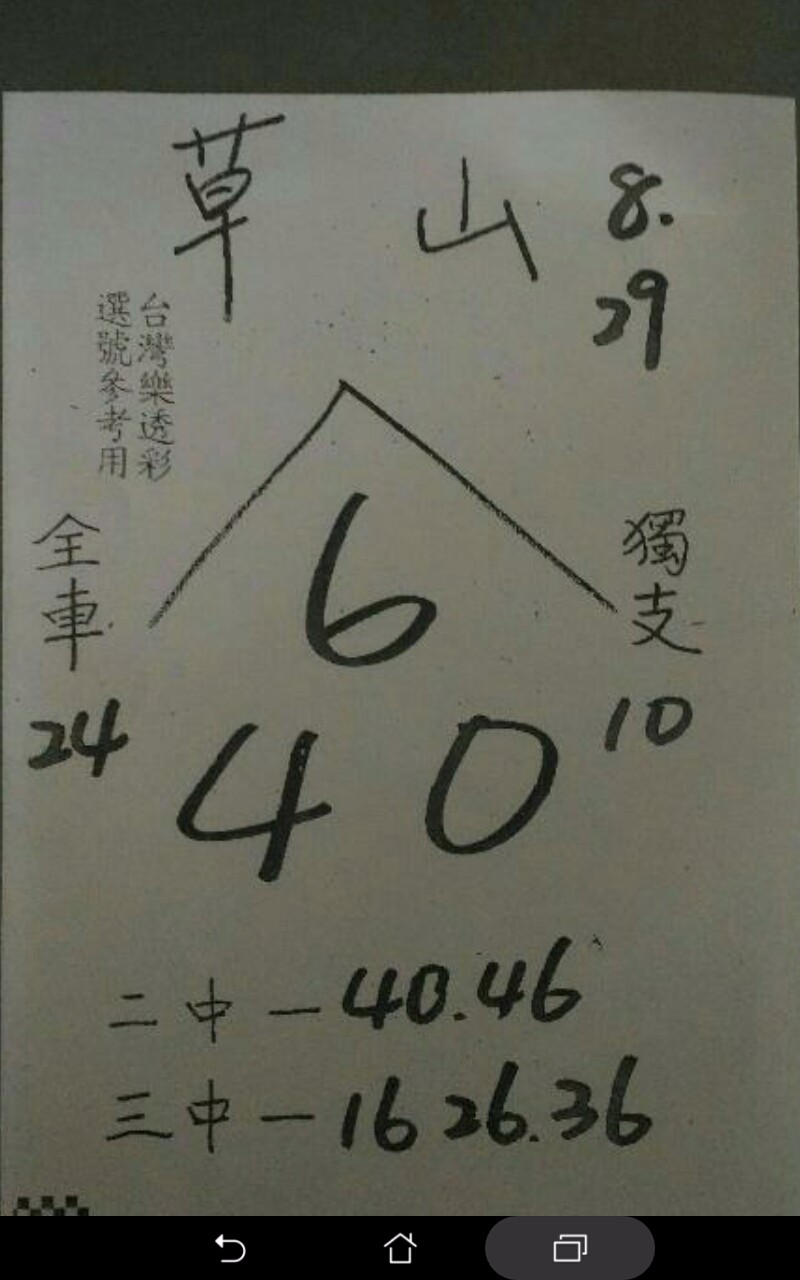 草山 8.
29
台灣樂透彩
選號參考用
全車
24
獨支
10
6
4 0
二中－40.46
三中－16 26.36